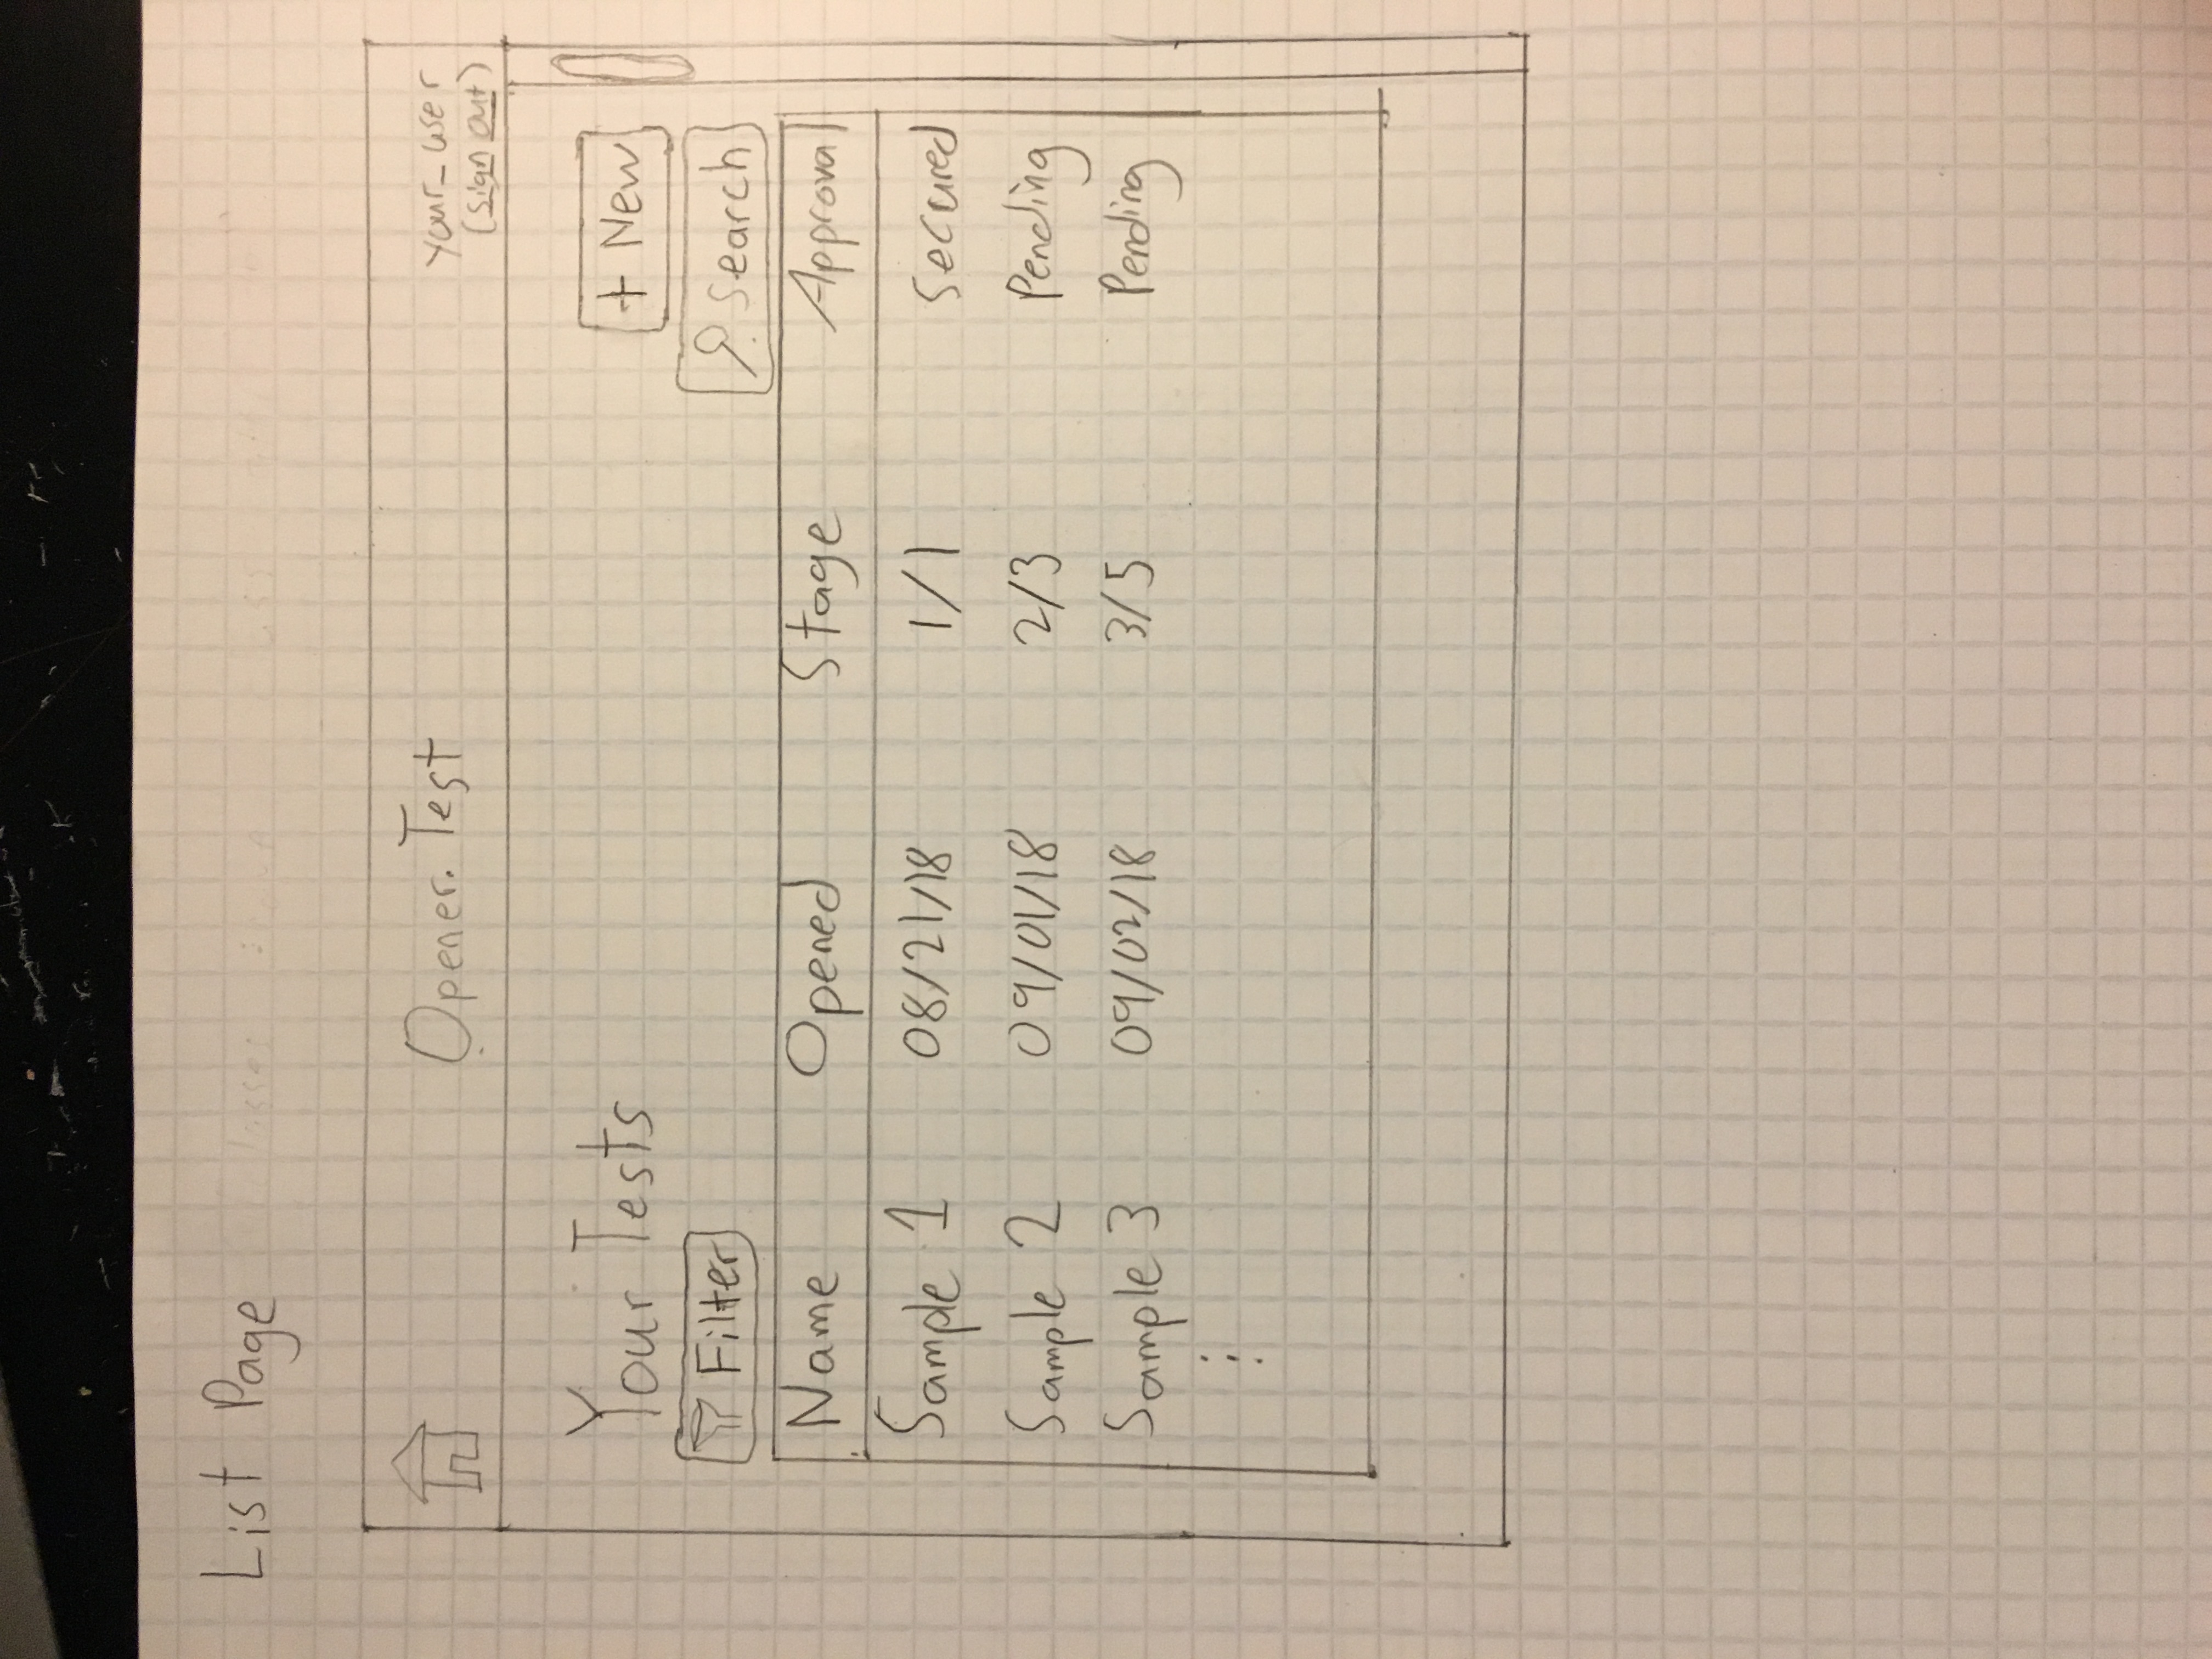 List Page
Opener.Test
your_user
(sign out)
Your Tests
+ New
Filter
Search
Name Opened Stage Approval
Sample 1 08/21/18 1/1 Secured
Sample 2 09/01/18 2/3 Pending
Sample 3 09/02/18 3/5 Pending
⋮